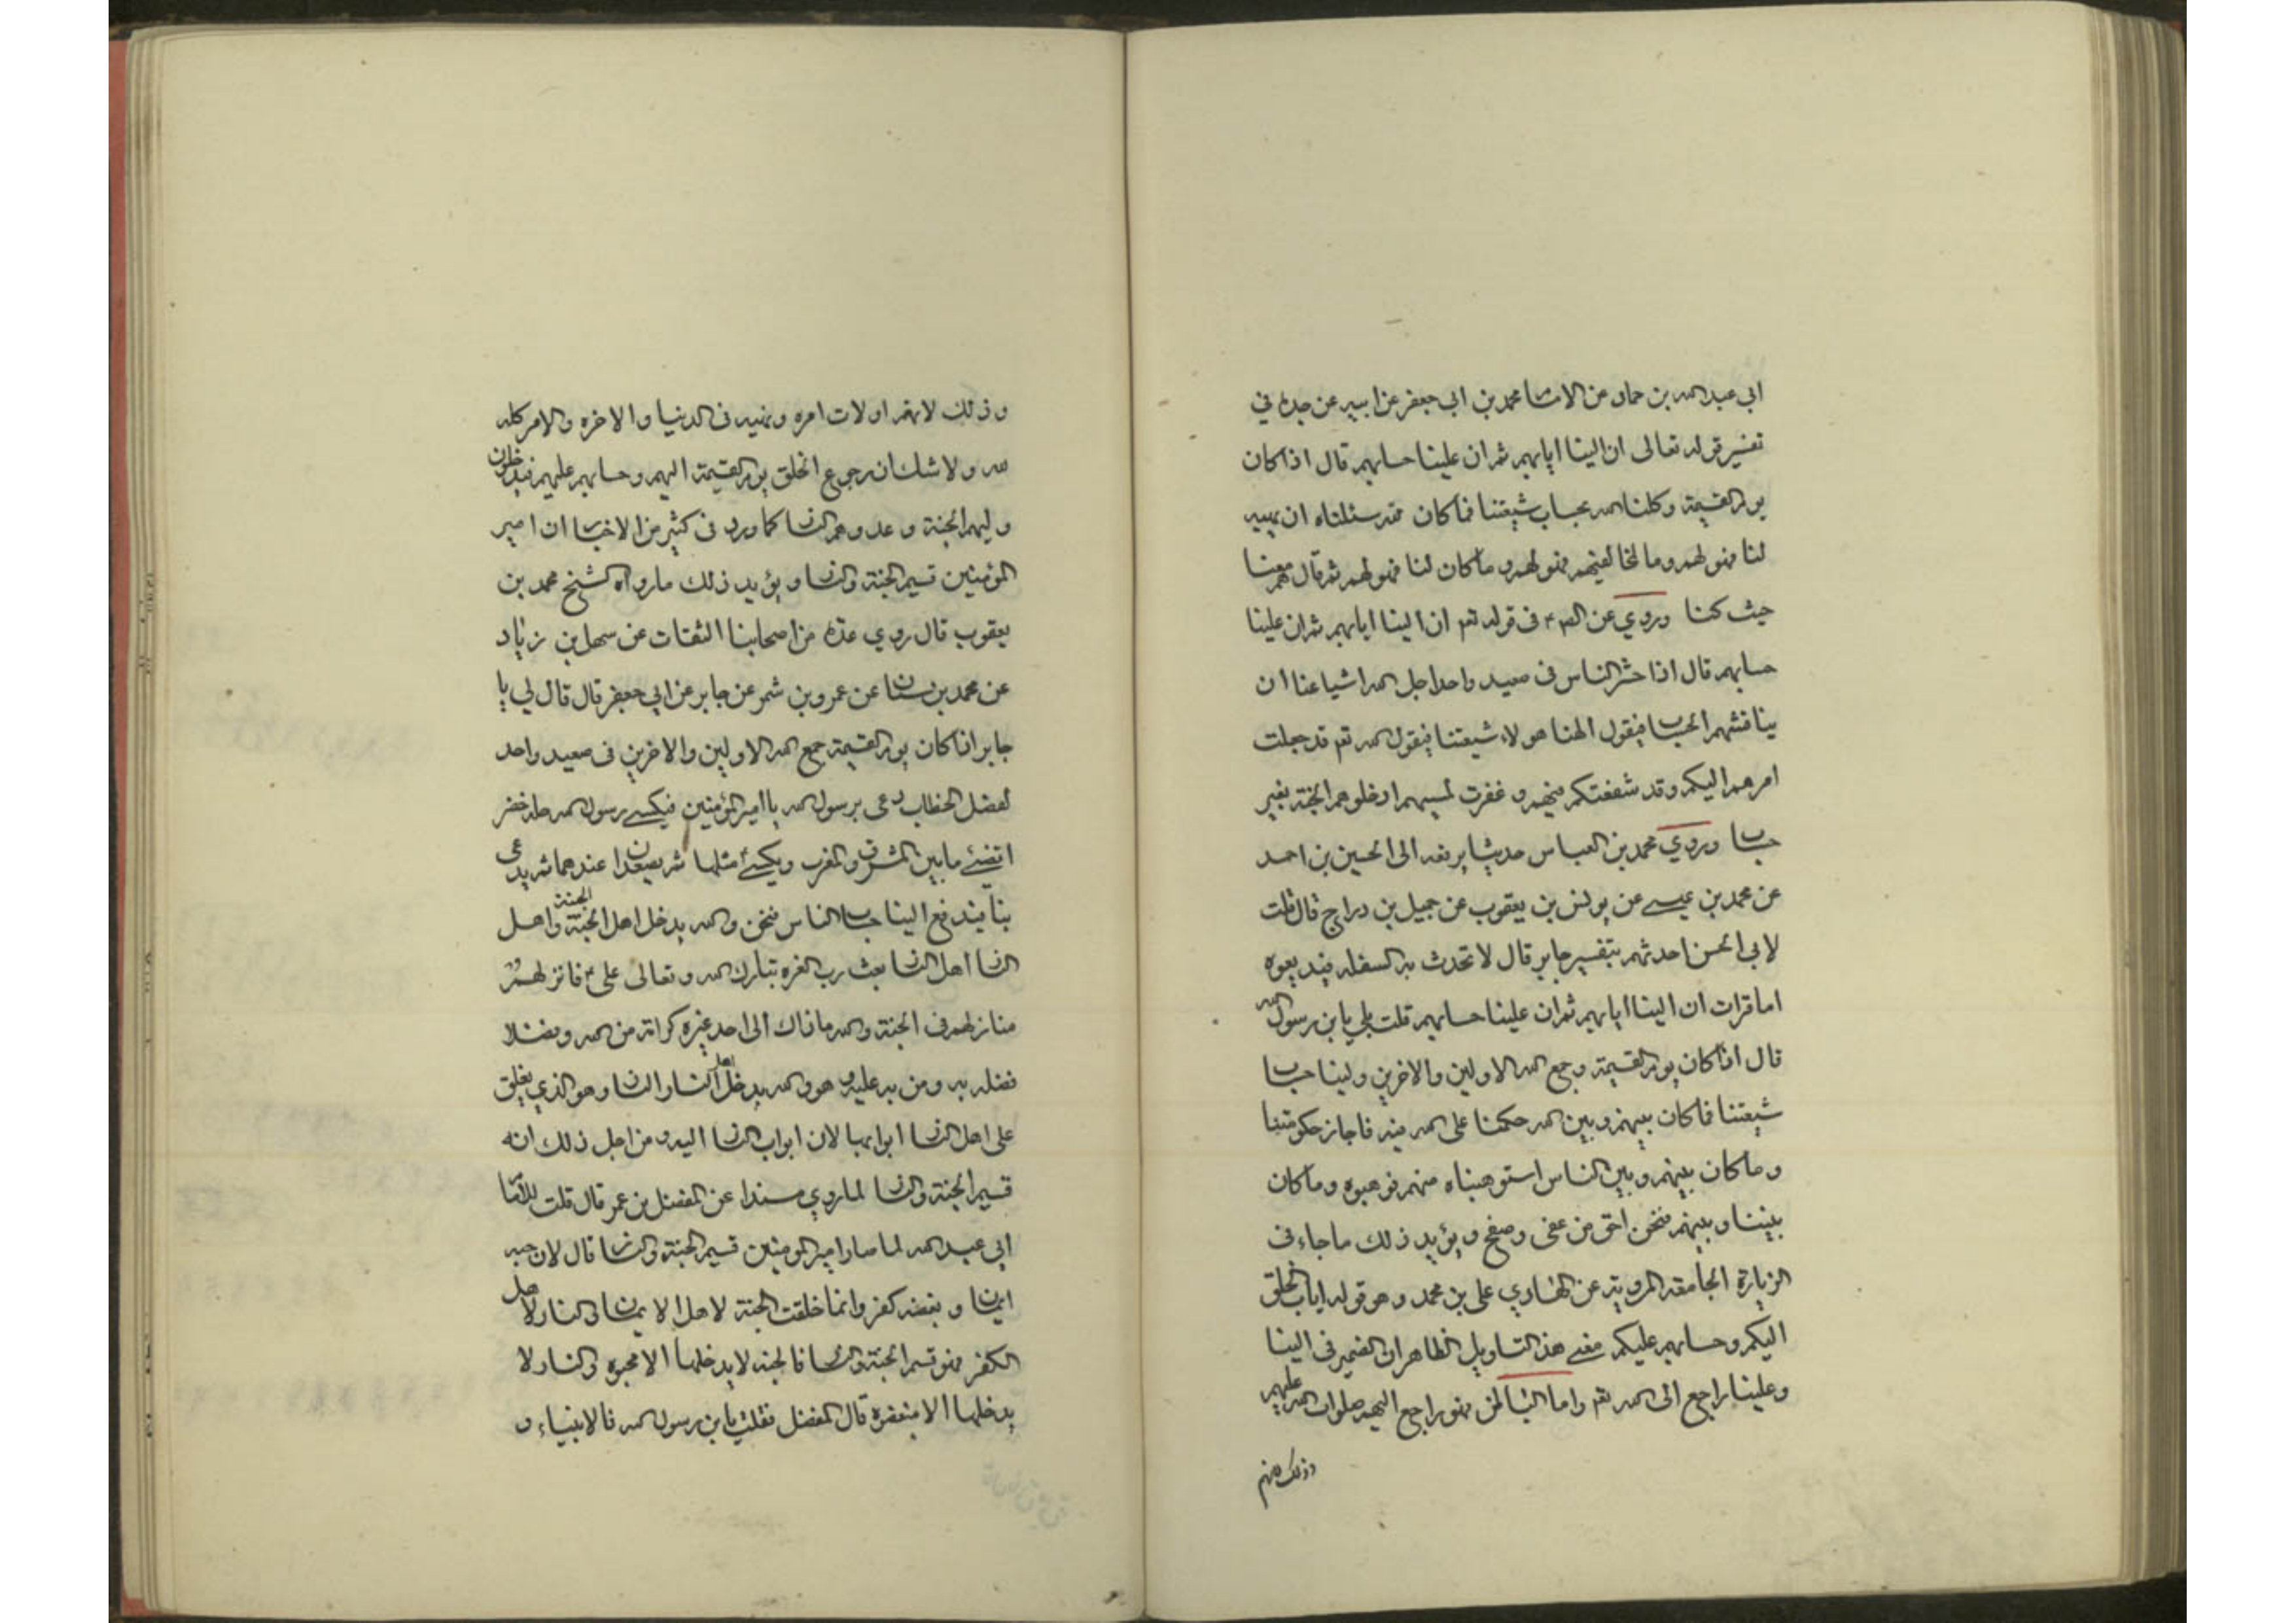 ابي عبد الله بن حماد عن الامام محمد بن ابي جعفر عن ابيه عن جده في
تفسير قوله تعالى ان الينا ايابهم ثم ان علينا حسابهم قال اذا كان
يوم القيمة وكلنا الله بحساب شيعتنا فما كان لله سئلناه ان يهبه
لنا فهو لهم وما لمخالفيهم فهو لهم وما كان لنا فهو لهم ثم قال هم معنا
حيث كنا وروي عن الصم في قوله تع ان الينا ايابهم ثم ان علينا
حسابهم قال اذا حشر الناس في صعيد واحد اجل الله اشياعنا ان
يناقشهم الحساب فيقول الهنا هولاء شيعتنا فيقول الله تع قد جعلت
امرهم اليكم وقد شفعتكم فيهم و غفرت لمسيهم ادخلوهم الجنة بغير
حساب وروي محمد بن العباس حديثا يرفعه الى الحسين بن احمد
عن محمد بن عيسى عن يونس بن يعقوب عن جميل بن دراج قال قلت
لابي الحسن احدثهم بتفسير جابر قال لا تحدث به السفله فيذيعوه
اما قرات ان الينا ايابهم ثم ان علينا حسابهم قلت بلى يا بن رسول الله
قال اذا كان يوم القيمة وجمع الله الاولين والاخرين ولينا حساب
شيعتنا فما كان بينهم وبين الله حكمنا على الله فيه فاجاز حكومتنا
وما كان بينهم وبين الناس استوهبناه منهم فوهبوه وما كان
بيننا وبينهم فنحن احق من عفى وصفح و يؤيد ذلك ما جاء في
الزيارة الجامعة المروية عن الهادي علي بن محمد وهو قوله اياب الخلق
اليكم وحسابهم عليكم معنى هذا التاويل الظاهر ان الضمير في الينا
وعلينا راجع الى الله تع واما الباطن فهو راجع اليهم صلوات الله عليهم
وذلك لانهم
وذلك لانهم اولات امره ونهيه في الدنيا والاخره والامر كله
لله ولا شك ان رجوع الخلق يوم القيمة اليهم وحسابهم عليهم فيدخلون
وليهم الجنة و عدوهم النار كما ورد في كثير من الاخبار ان امير
المؤمنين قسيم الجنة والنار و يؤيد ذلك ما رواه الشيخ محمد بن
يعقوب قال روي عدة من اصحابنا الثقات عن سهل بن زياد
عن محمد بن سنان عن عمرو بن شمر عن جابر عن ابي جعفر قال قال لي يا
جابر اذا كان يوم القيمة جمع الله الاولين والاخرين في صعيد واحد
لفصل الخطاب دعى برسول الله يا امير المؤمنين فيكسى رسول الله حلة خضر
اتضئ ما بين المشرق والمغرب ويكسى مثلها ثم يصعدان عندهما ثم يدعى
بنا فيدفع الينا حساب الناس فنحن والله يدخل اهل الجنة الجنة واهل
النار اهل النار بعث رب العزه تبارك الله وتعالى علي فانزلهم
منازلهم في الجنة والله ما ذاك الى احد غيره كرامة من الله وفضلا
فضله به ومن به عليه و هو والله يدخل اهل النار النار وهو الذي يغلق
على اهل النار ابوابها لان ابواب النار اليه ومن اجل ذلك انه
قسيم الجنة والنار لما روي مسندا عن المفضل بن عمر قال قلت للامام
ابي عبد الله لما صار امير المومنين قسيم الجنة والنار قال لان حبه
ايمان و بغضه كفر وانما خلقت الجنة لاهل الايمان والنار لاهل
الكفر فهو قسيم الجنة والنار فالجنه لا يدخلها الا محبوه والنار لا
يدخلها الا مبغضوه قال المفضل فقلت يا بن رسول الله فالانبياء و